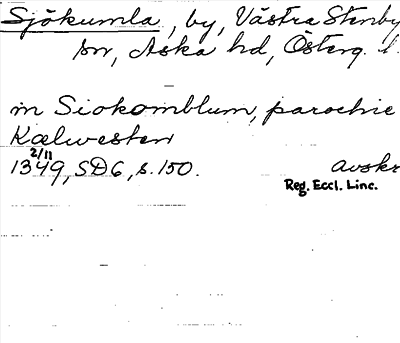 Sjökumla, by, Västra Stenby
sn, Aska hd, Österg. l.
in Siokomblum, parochie
Kælwesten
2/11
1349, SD6, s. 150. Avskr
Reg. Eccl. Linc.